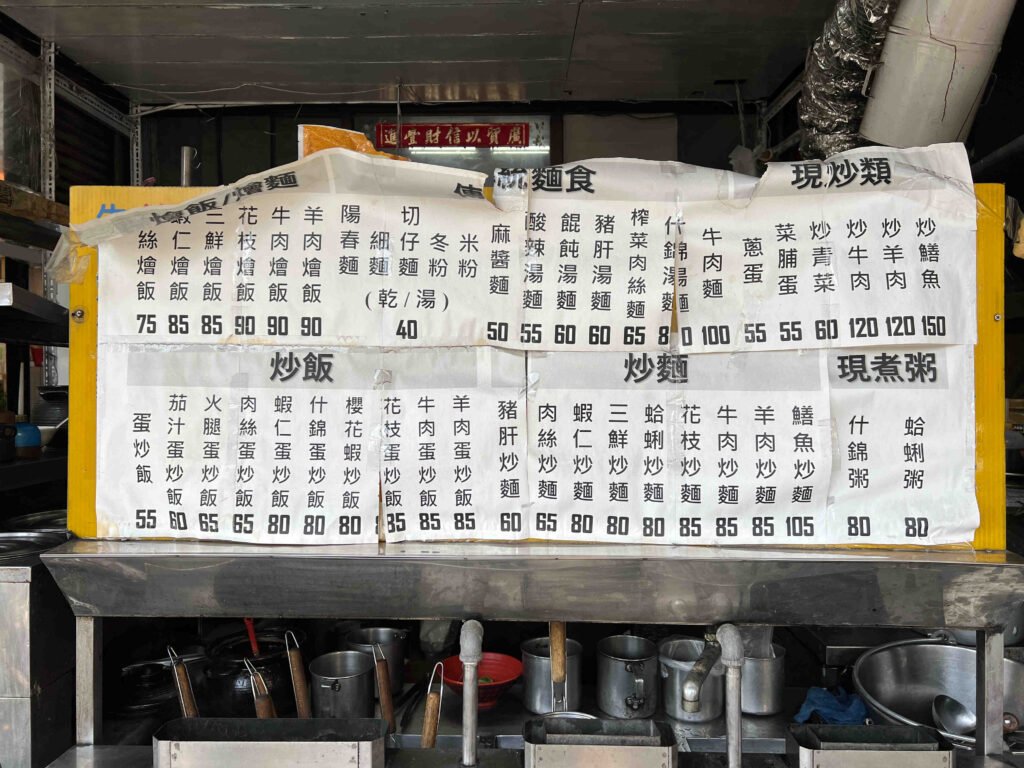 實以信財豐進
燴飯/燴麵
絲燴飯 75
蝦仁燴飯 85
三鮮燴飯 85
花枝燴飯 90
牛肉燴飯 90
羊肉燴飯 90
統麵食
陽春麵
細麵
切仔麵
冬粉
米粉
(乾/湯)
40
麻醬麵 50
酸辣湯麵 55
餛飩湯麵 60
豬肝湯麵 60
榨菜肉絲麵 65
什錦湯麵 80
牛肉麵 100
現炒類
蔥蛋 55
菜脯蛋 55
炒青菜 60
炒牛肉 120
炒羊肉 120
炒鱔魚 150
炒飯
蛋炒飯 55
茄汁蛋炒飯 60
火腿蛋炒飯 65
肉絲蛋炒飯 65
蝦仁蛋炒飯 80
什錦蛋炒飯 80
櫻花蝦炒飯 80
花枝蛋炒飯 85
牛肉蛋炒飯 85
羊肉蛋炒飯 85
炒麵
豬肝炒麵 60
肉絲炒麵 65
蝦仁炒麵 80
三鮮炒麵 80
蛤蜊炒麵 80
花枝炒麵 85
牛肉炒麵 85
羊肉炒麵 85
鱔魚炒麵 105
現煮粥
什錦粥 80
蛤蜊粥 80